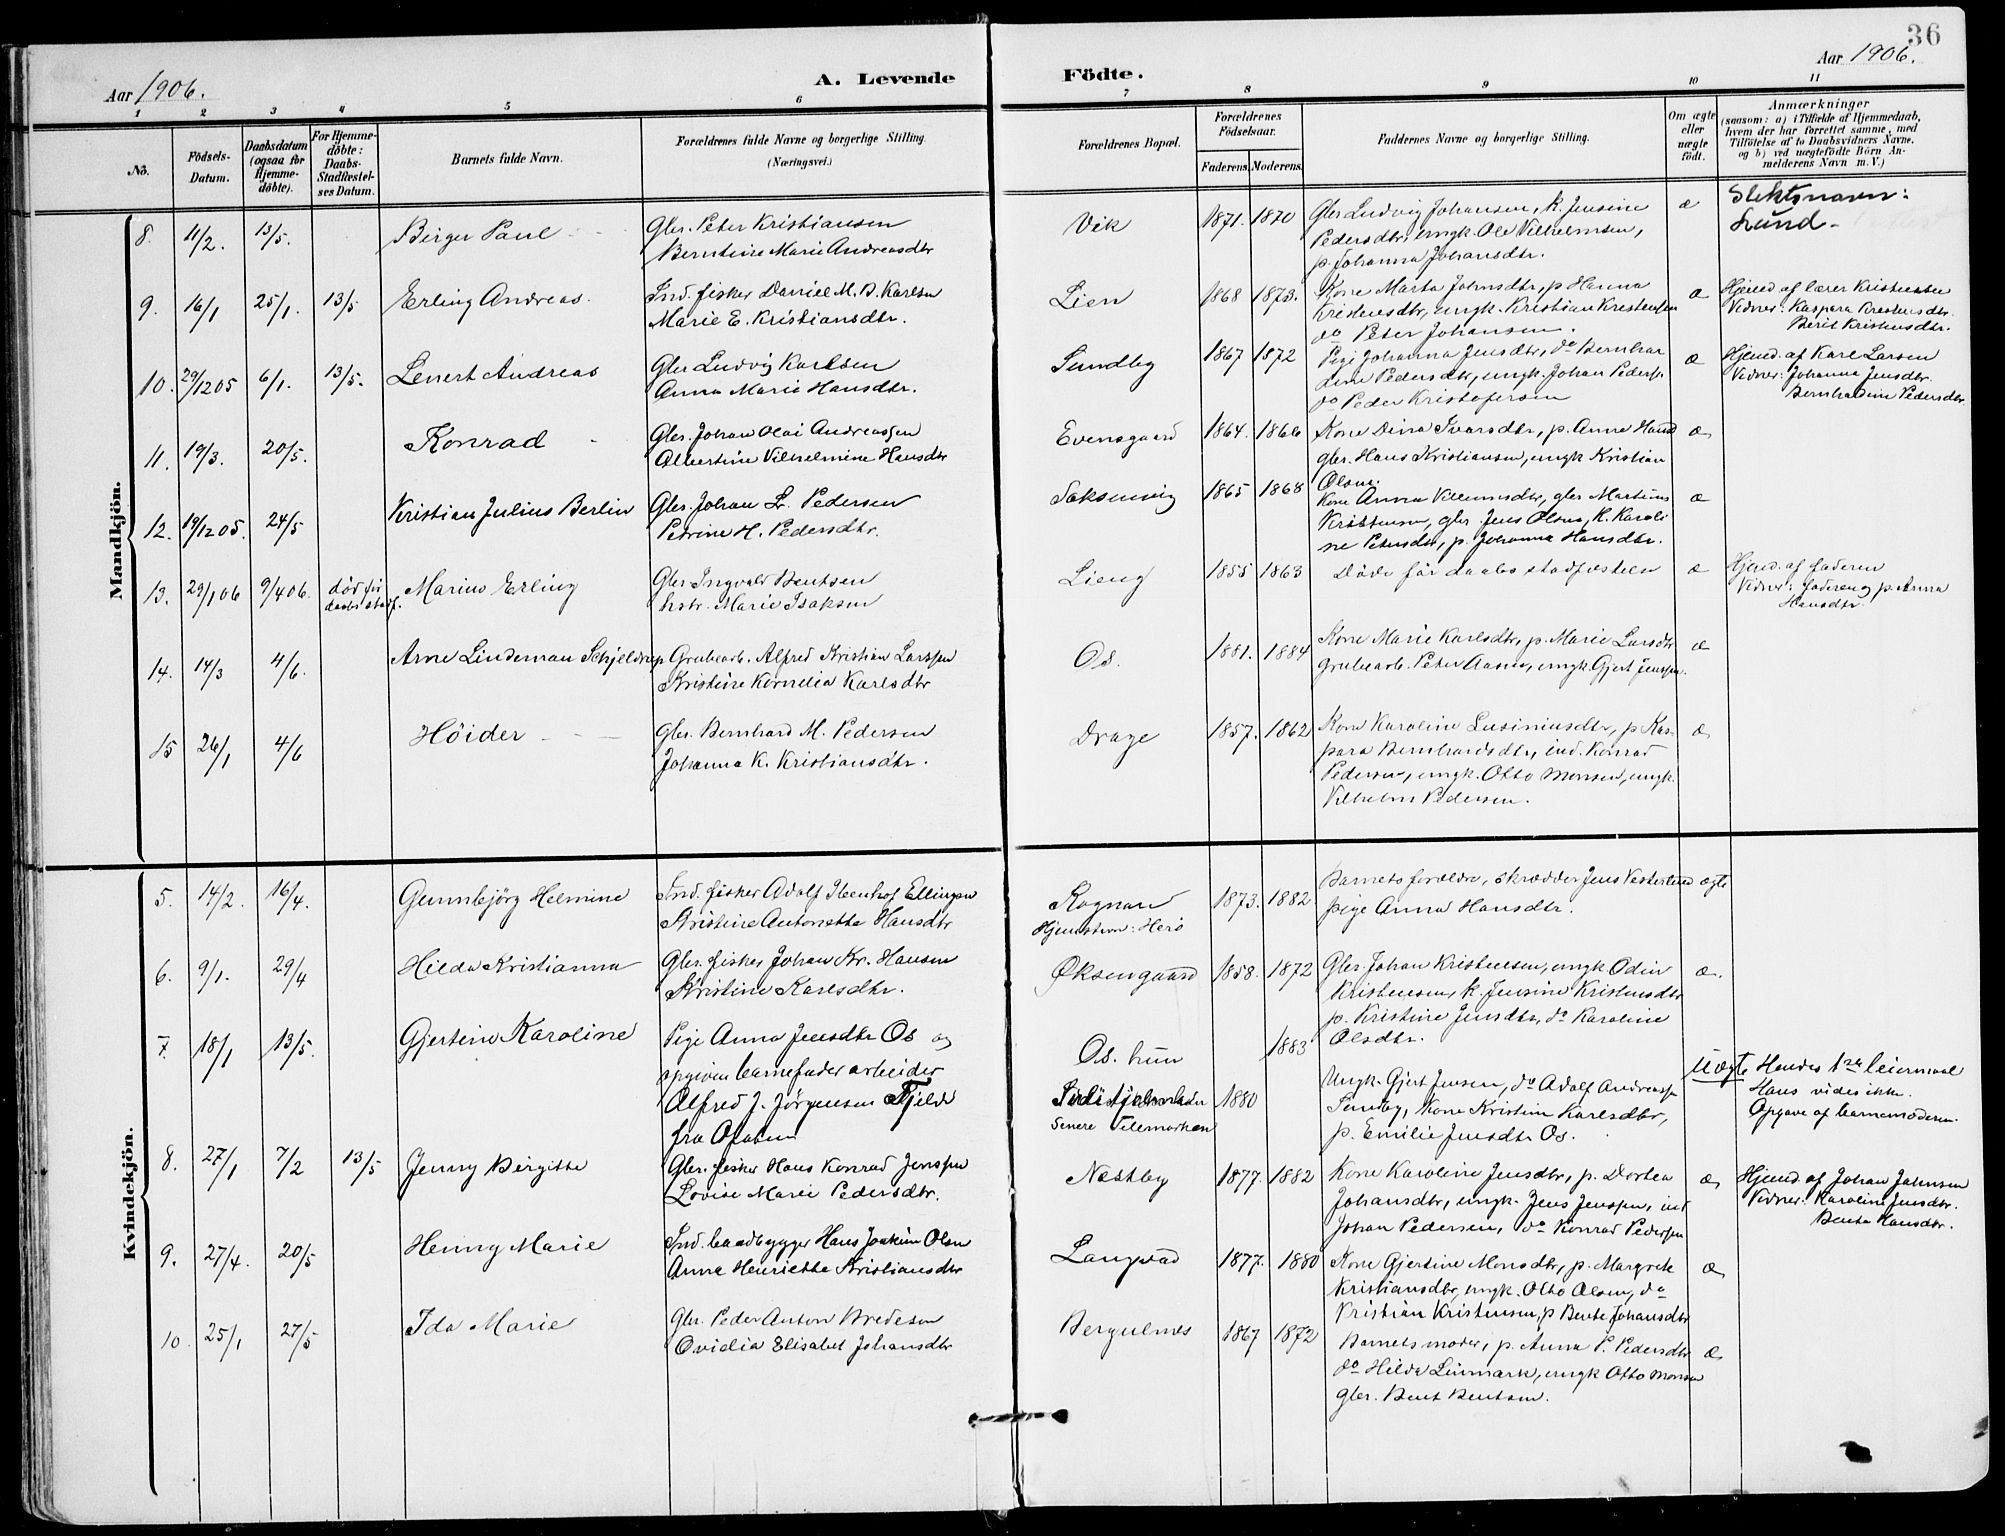 36
Aar 1906.
A. Levende
Födte.
Aar 1906.
1 2 3 4 5 6 7 8 9 10 11
No.
Födsels-Datum.
Daabsdatum (ogsaa for Hjemmedöbte).
For Hjemmedöbte: Daabs-Stadfæstelses Datum.
Barnets fulde Navn.
Forældrenes fulde Navne og borgerlige Stilling. (Næringsvei.)
Forældrenes Bopæl.
Forældrenes Födselsaar.
Faderens. Moderens.
Faddernes Navne og borgerlige Stilling.
Om ægte eller uægte födt.
Anmærkninger
(saasom: a) i Tilfælde af Hjemmedaab, hvem der har forrettet samme, med Tilföielse af to Daabsvidners Navne, og b) ved uægtefödte Börn Anmelderens Navn m. V.)
Mandkjön.
8. 11/2. 13/5. Birger Paul
Gbr. Peter Kristiansen
Berntine Marie Andreasdtr
Vik 1871. 1870
Gbr Ludvig Johansen, k. Jensine
Pedersdtr, ungk. Ole Vilhelmsen,
p. Johanna Johansdtr.
æ
Slektsnavn:
Lund
9. 16/1 25/1. 13/5 Erling Andreas.
Ind. fisker Daniel M. B. Karlsen
Marie E. Kristiansdtr.
Lien 1868 1873.
Kone Marta Johnsdtr, p. Hanna
Kristensdtr, ungk. Kristian Kristensen
do Peter Johansen.
æ
Hjemd. af lærer Kristensen
Vidner: Kaspara Kristensdtr.
Berit Kristensdtr.
10. 29/12 05 6/1. 13/5. Lenert Andreas
Gbr Ludvig Karlsen
Anna Marie Hansdtr.
Sundby 1867 1872
Pige Johanna Jensdtr, do Bernhar
dine Pedersdtr, ungk. Johan Peders.
do Peder Kristofersen
æ
Hjemd. af Karl Larsen
Vidner: Johanna Jensdtr.
Bernhadine Pedersdtr.
11. 19/3. 20/5. Konrad
Gbr. Johan Olai Andreassen
Albertine Vilhelmine Hansdtr
Evensgaard 1864. 1866
Kone Dina Ivarsdtr, p. Anna Hansd
gbr. Hans Kristiansen, ungk Kristian
Olsen.
æ
12. 19/12 05. 24/5 Kristian Julius Berlin
Gbr. Johan L. Pedersen
Petrine H. Pedersdtr.
Saksenvig 1865 1868
Kone Anna Villumsdtr, gbr Martinus
Kristensen, gbr. Jens Olsen, k. Karoli
ne Petersdtr, p. Johanna Hansdtr.
æ
13. 29/1 06 9/4 06. död før daabs stadf. Marius Erling
Gbr Ingvald Bentsen
hstr. Marie Isaksen
Lieng 1855 1863
Döde før daabs stadfæstelsen
æ
Hjemd. af faderen
Vidner: faderen og p. Anna
Hansdtr.
14. 14/3 4/6. Arne Lindeman Schjeldrup
Grubearb. Alfred Kristian Larssen
Kristine Kornelia Karlsdtr
Os. 1881. 1884
Kone Marie Karlsdtr, p. Marie Larsdtr
grubearb. Peter Aasen, ungk. Gjert Jenssen.
æ
15 26/1 4/6 Höider
Gbr. Bernhard M. Pedersen
Johanna K. Kristiansdtr.
Drage 1857. 1862
Kone Karoline Lusiniusdtr, p Kas-
para Bernhardsdtr, ind. Konrad
Pedersen, ungk. Otto Monsen, ungk.
Vilhelm Pedersen.
æ
Kvindekjön.
5. 14/2. 16/4. Gunnbjörg Helmine
Ind. fisker Adolf Ellingsen
Kristine Antonette Hansdtr
Rognan
Hjemstavn: Herö
1873. 1882
Barnets forældre, skrædder Jens Vesterlund
pige Anna Hansdtr.
ægte
6. 9/1. 29/4 Hilda Kristianna
Gbr. fisker Johan Kr. Hansen
Kristine Karlsdtr.
Øksengaard 1858. 1872
Gbr. Johan Kristensen, ungk Odin
Kristensen, k. Jensine Kristensdtr
p. Kristine Jensdtr, do Karoline
Olsdtr.
æ.
7. 18/1 13/5. Gjertine Karoline
Pige Anna Jensdtr Os og
opgiven barnefader arbeider
Alfred J. Jörgensen Fjeld
fra Ofoten
Os. hun 1883
1880
senere Telemarken
Ungk. Gjert Jensen, do Adolf Andreassen
Sundby, Kone Kristine Karlsdtr,
p. Emilie Jensdtr Os.
Uægte Hendes 1ste leiermaal
Hans vides ikke.
Opgave af barnemoderen.
8. 27/1 7/2 13/5 Jenny Birgitte
Gbr. fisker Hans Konrad Jenssen
Lovise Marie Pedersdtr.
Nestby 1877. 1882
Kone Karoline Jensdtr, p. Dortea
Johansdtr, ungk. Jens Jenssen, ind
Johan Pedersen, do Konrad Pedersen
æ
Hjemd. af Johan Johnsen
Vidner: Karoline Jensdtr.
Benta Hansdtr.
9. 27/4. 20/5 Henny Marie
Ind. baadbygger Hans Joakim Olsen
Anne Henriette Kristiansdtr
Langvad 1877. 1880
Kone Gjertine Monsdtr, p. Margrete
Kristiansdtr, ungk. Otto Olsen, do
Kristian Kristensen, p Bente Johansdtr
æ
10 25/1 27/5 Ida Marie
Gbr. Peder Anton Bredesen
Ovidia Elisabet Johansdtr
Bergulnes 1867 1872
Barnets moder, p. Anna P. Pedersdtr
do Hilda Linmark, ungk Otto Monsen
gbr. Bent Bentsen.
æ